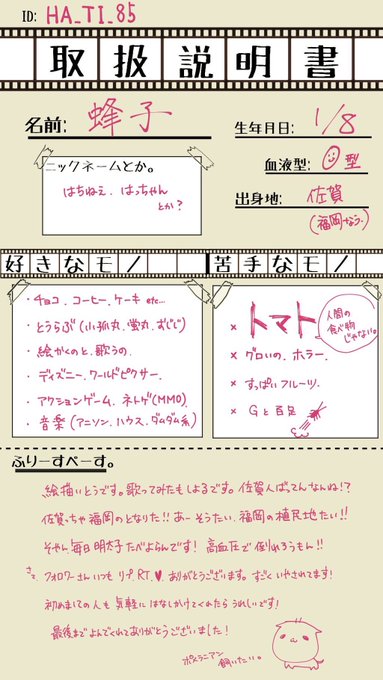 ID: HA_TI_85
取扱説明書
名前: 蜂子
生年月日: 1/8
血液型: 型
出身地: 佐賀
(福岡なう。)
ニックネームとか。
はちねえ、はっちゃん
とか？
好きなモノ
・チョコ、コーヒー、ケーキ etc...
・とうらぶ(小狐丸、蛍丸、おじじ)
・絵かくのと、歌うの。
・ディズニー、ワールドピクサー。
・アクションゲーム、ネトゲ(MMO)
・音楽(アニソン、ハウス、ダムダム系)
苦手なモノ
× トマト
人間の
食べ物
じゃない。
× グロいの、ホラー。
× すっぱいフルーツ。
× Gと百足
ふりーすぺーす。
絵描いとうです。歌ってみたもしよるです。佐賀人ばってんなんね!?
佐賀っちゃ福岡のとなりた!! あーそうたい、福岡の植民地たい!!
そやん毎日明太子たべよらんです! 高血圧で倒れろうもん!!
さて、フォロワーさんいつもリプ、RT、♥、ありがとうございます。すごくいやされてます!
初めましての人も気軽にはなしかけてくれたらうれしいです!
最後までよんでくれてありがとうございました!
ポメラニアン
飼いたい。